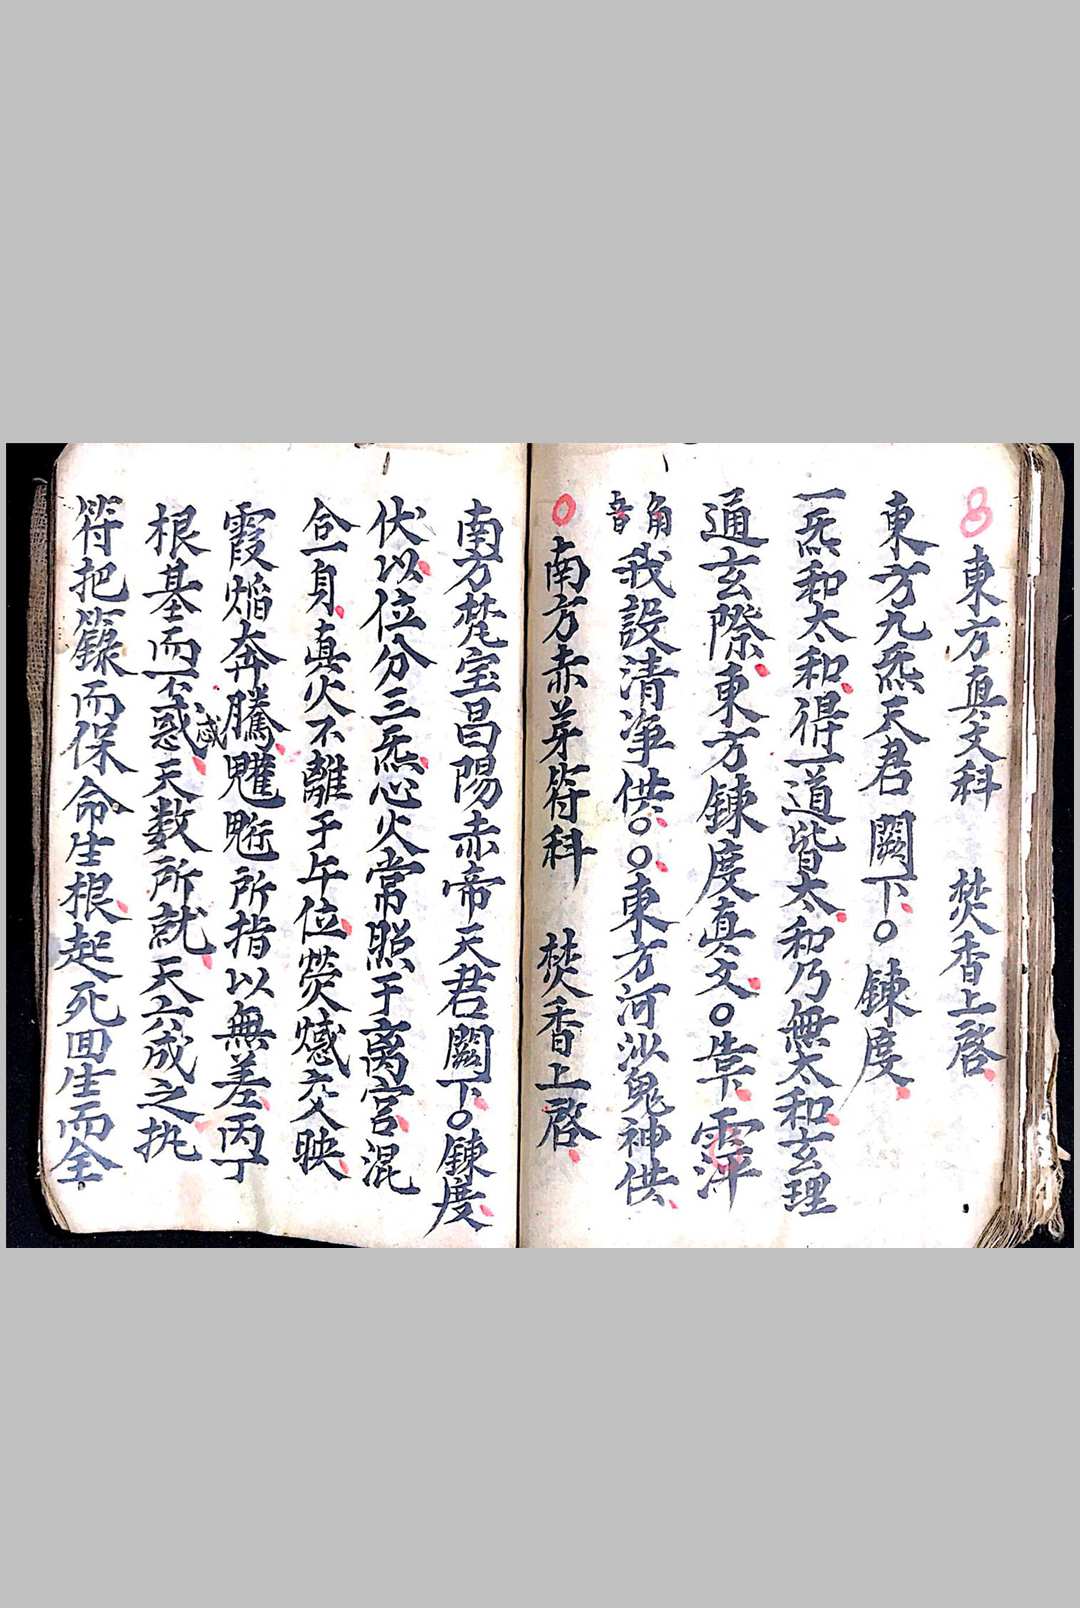 8東方真文科　焚香上啓
東方九炁天君 闕下○ 鍊度
一炁和太和得一道皆太和乃無太和玄理
通玄際東方鍊度真文○告下
角音 我設清淨供○○東方河沙鬼神供
○南方赤芽符科　焚香上啓
南方梵宝昌陽赤帝天君闕下○鍊度
伏以位分三炁心火常照于离宮混
合一身真火不離于午位熒惑交映
霞焔奔騰所指以無差丙丁
根基而不惑感天数所就天六成之执
符把籙而保命生根起死回生而全